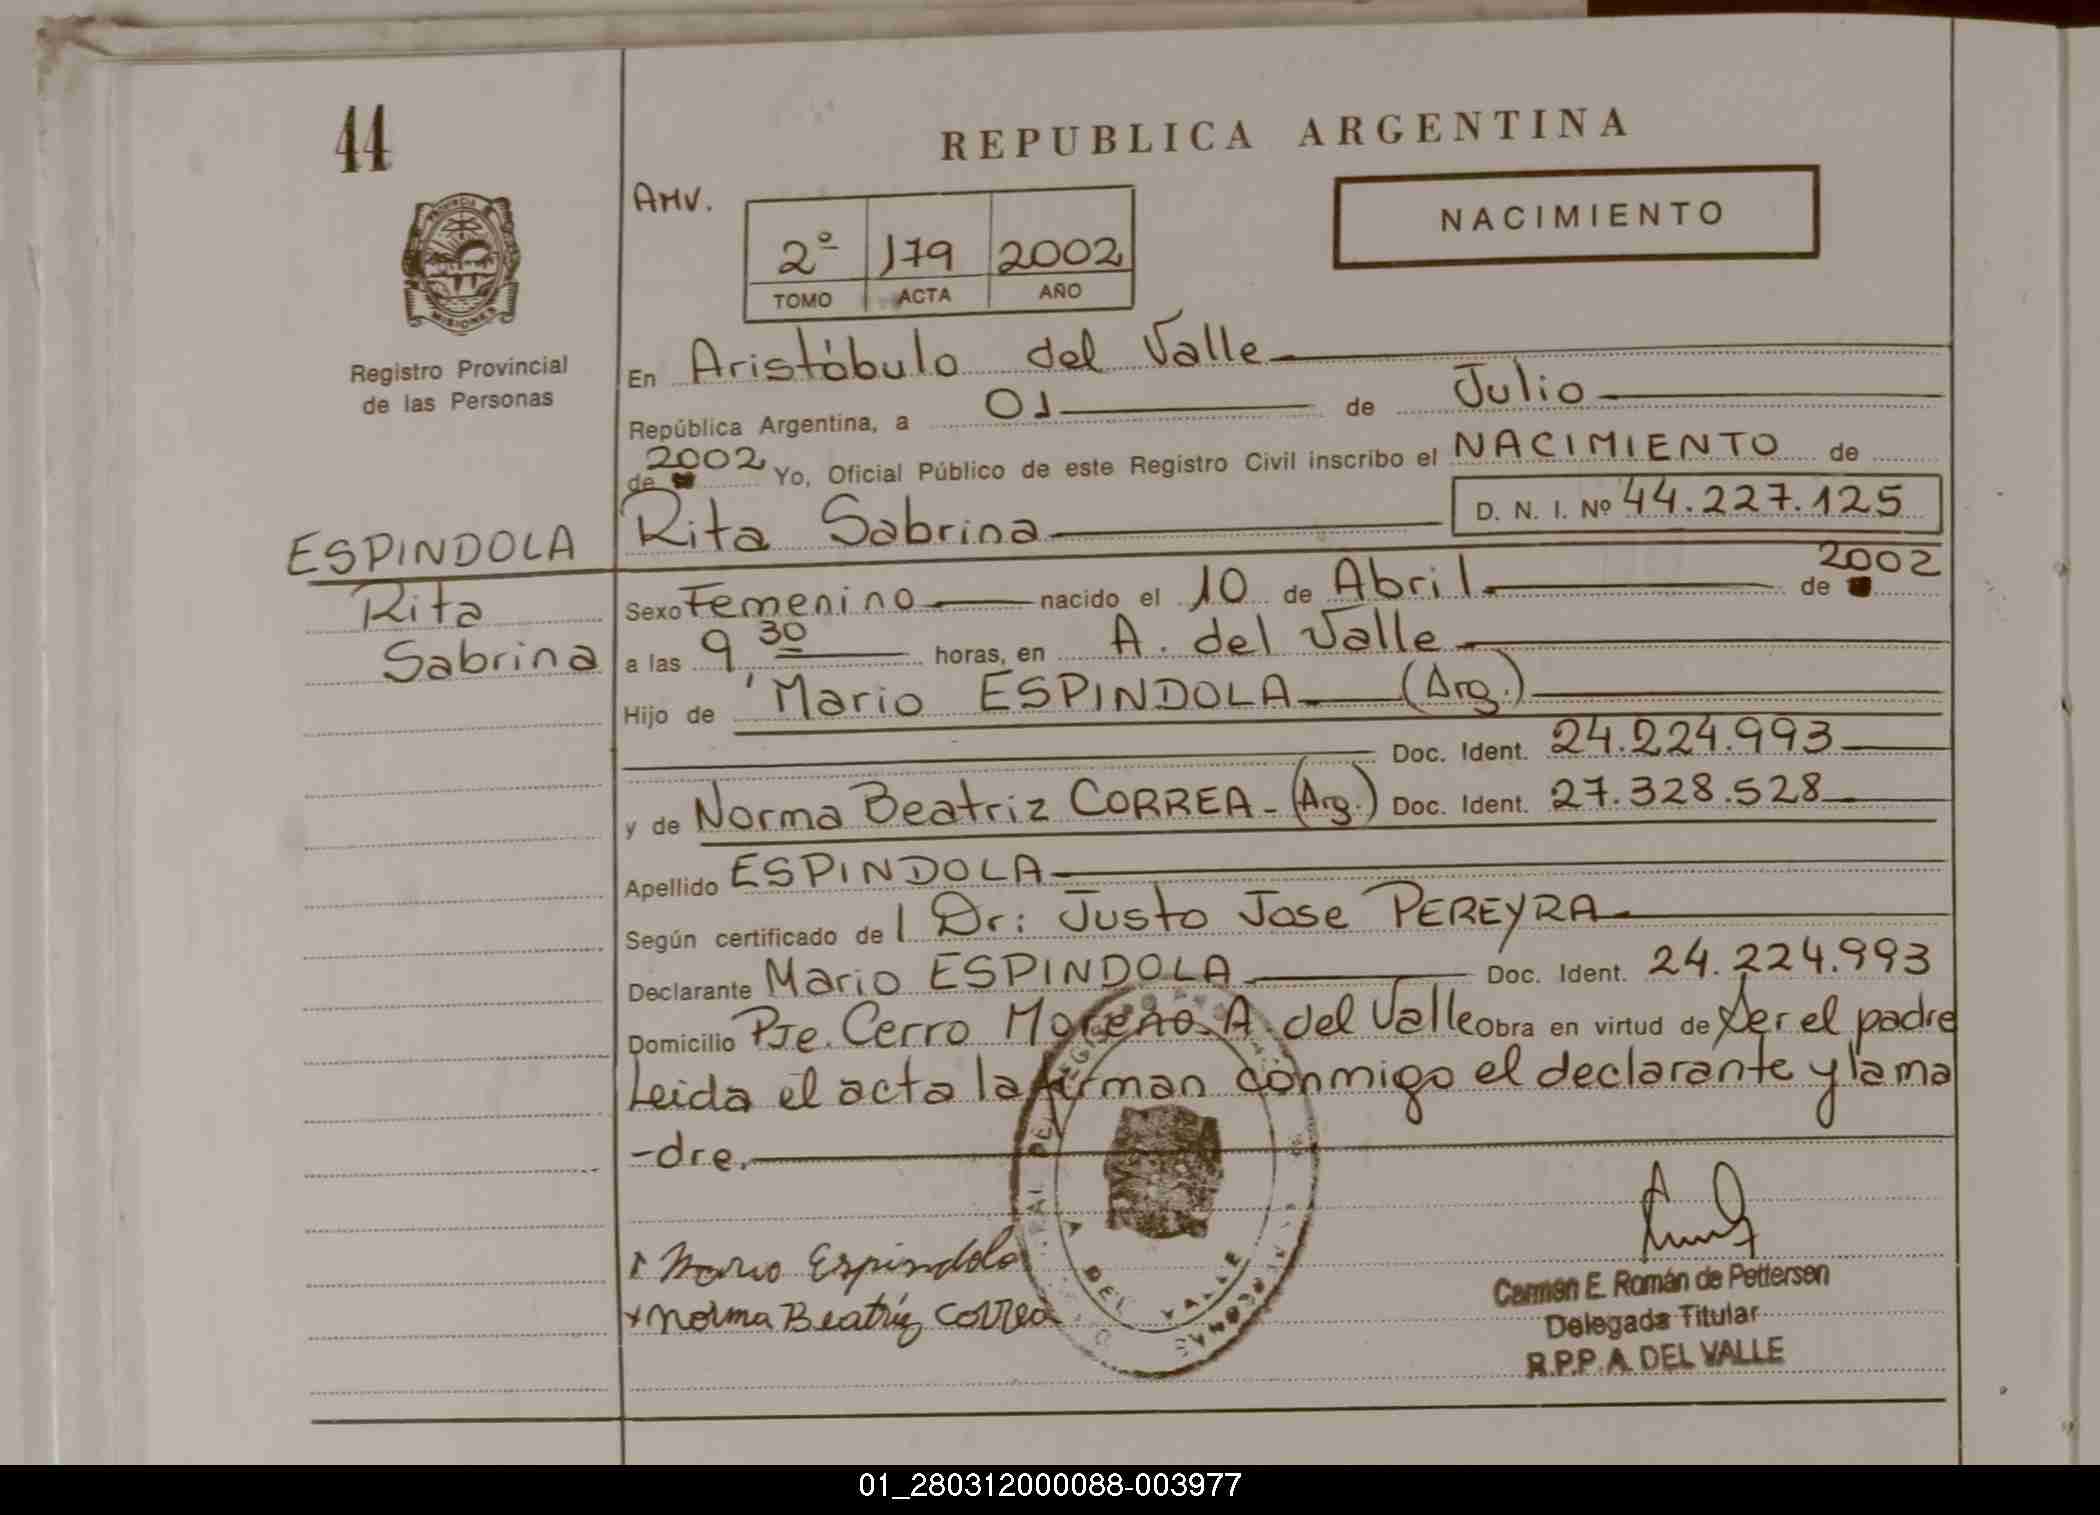 44
REPUBLICA ARGENTINA
AMV.
2º 179 2002
TOMO ACTA AÑO
NACIMIENTO
PROVINCIA
MISIONES
Registro Provincial
de las Personas
En Aristóbulo del Valle
República Argentina, a 01 de Julio
de 2002 Yo, Oficial Público de este Registro Civil inscribo el NACIMIENTO de
Rita Sabrina D. N. I. Nº 44.227.125
ESPINDOLA
Rita
Sabrina
Sexo Femenino nacido el 10 de Abril de 2002
a las 9,30 horas, en A. del Valle
Hijo de Mario ESPINDOLA (Arg.)
Doc. Ident. 24.224.993
y de Norma Beatriz CORREA - (Arg.) Doc. Ident. 27.328.528
Apellido ESPINDOLA
Según certificado de l Dr: Justo Jose PEREYRA
Declarante Mario ESPINDOLA Doc. Ident. 24.224.993
Domicilio Pje. Cerro Moreno A. del Valle Obra en virtud de Ser el padre
Leida el acta la firman conmigo el declarante y la ma
-dre.
Mario Espindola
x Norma Beatriz Correa
A. DEL VALLE
Carmen E. Román de Pettersen
Delegada Titular
R.P.P. A. DEL VALLE
01_280312000088-003977